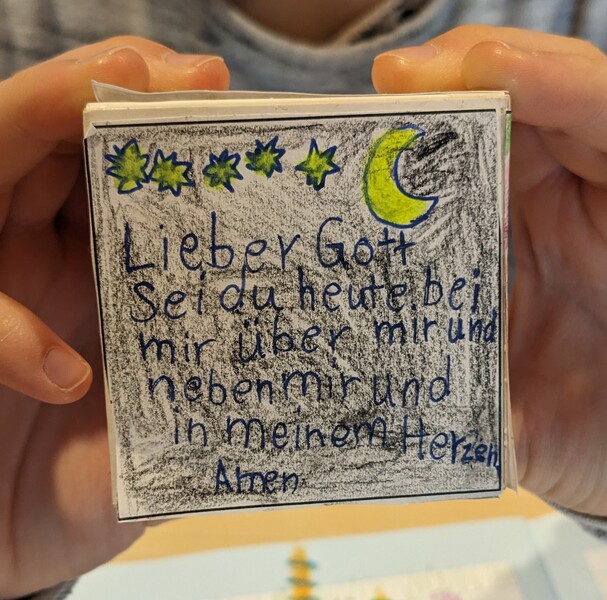 Lieber Gott
Sei du heute bei
mir über mir und
neben mir und
in meinem Herzen
Amen.